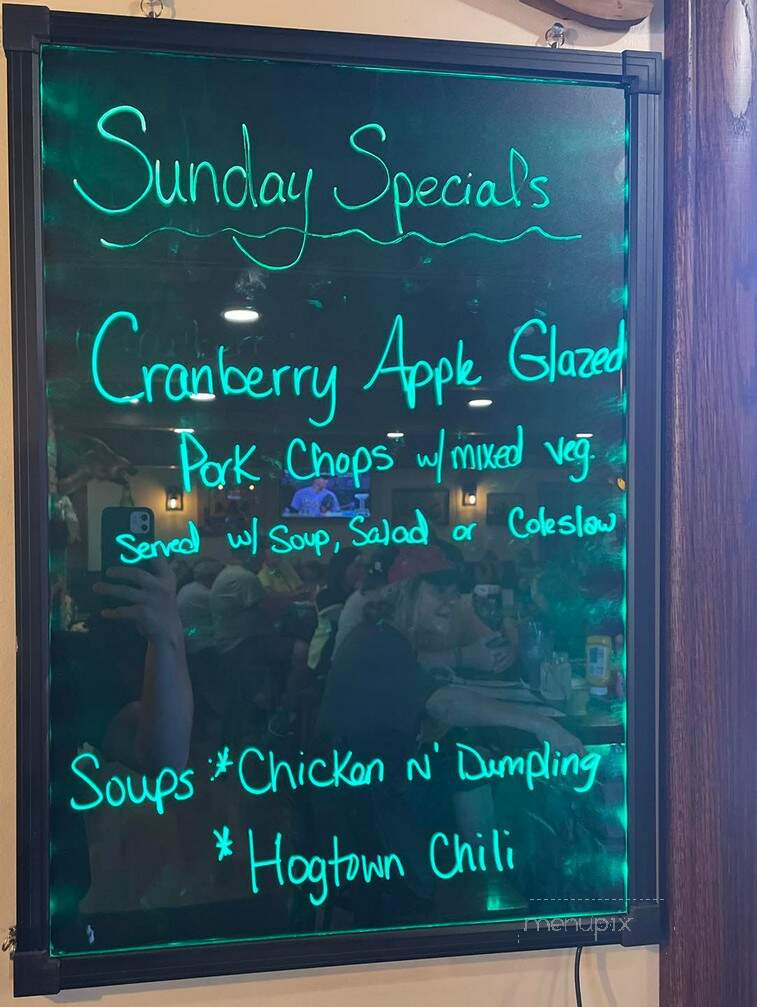 Sunday Specials
Cranberry Apple Glazed
Pork Chops w/ mixed veg.
Served w/ Soup, Salad or Coleslaw
Soups: *Chicken N' Dumpling
*Hogtown Chili
menupix